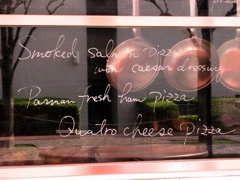 Smoked salmon pizza
with caesar dressing
Parman fresh ham pizza
Quatro cheese pizza